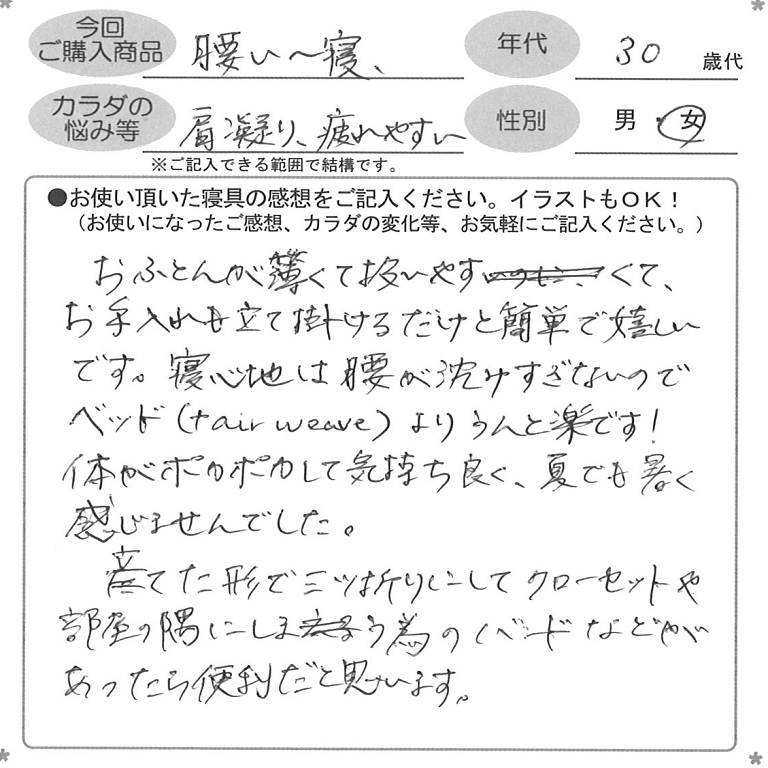 今回
ご購入商品
腰い〜寝、
年代
30
歳代
カラダの
悩み等
肩凝り、疲れやすい
性別
男・女
※ご記入できる範囲で結構です。
●お使い頂いた寝具の感想をご記入ください。イラストもOK！
（お使いになったご感想、カラダの変化等、お気軽にご記入ください。）
おふとんが薄くて扱いやすくて、
お手入れも立て掛けるだけと簡単で嬉しい
です。寝心地は腰が沈みすぎないので
ベッド(+air weave)よりうんと楽です!
体がポカポカして気持ち良く、夏でも暑く
感じませんでした。
立てた形で三ツ折りにしてクローゼットや
部屋の隅にしまう為のバンドなどが
あったら便利だと思います。